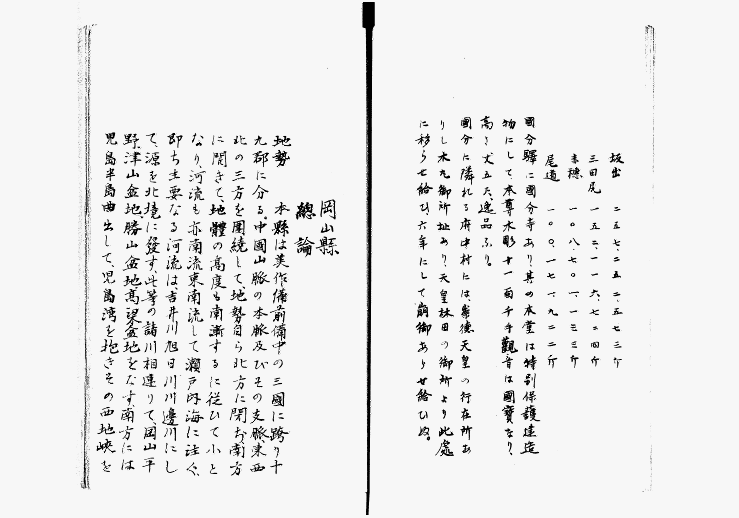 坂出　二五七、二五二、五七三斤
三田尻　一五二、一一六、七二四斤
赤穂　一〇八、七〇一、一三三斤
尾道　一〇〇、一七一、九二二斤
國分驛に國分寺あり其の本堂は特別保護建造
物にして本尊木彫十一面千手觀音は國寶なり、
高さ丈五尺、逸品なり。
國分に隣れる府中村には崇德天皇の行在所あ
りし木丸御所址あり、天皇林田の御所より此處
に移らせ給ひ、六年にして崩御あらせ給ひぬ。
岡山縣
總論
地勢　本縣は美作備前備中の三國に跨り十
九郡に分る。中國山脈の本脈及びその支脈東西
北の三方を圍繞して、地勢自ら北方に閉ぢ、南方
に開きて、地體の高度も南漸するに從ひて小と
なり、河流も亦南流東南流して瀨戸内海に注ぐ、
即ち主要なる河流は、吉井川旭川川邊川にし
て、源を北境に發す、此等の諸川相連りて岡山平
野、津山盆地、勝山盆地、高梁盆地をなす、南方には
児島半島曲出して、児島灣を抱きその西地峽を